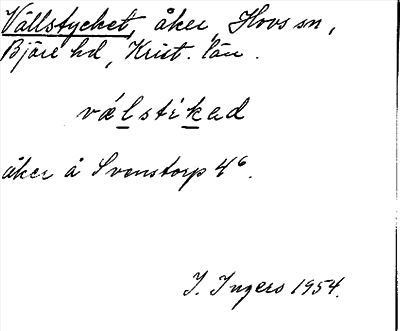 Vällstycket, åker, Hovs sn,
Bjäre hd, Krist. län.
vǽlstikad
åker å Svenstorp 4⁶.
I. Ingers 1954.